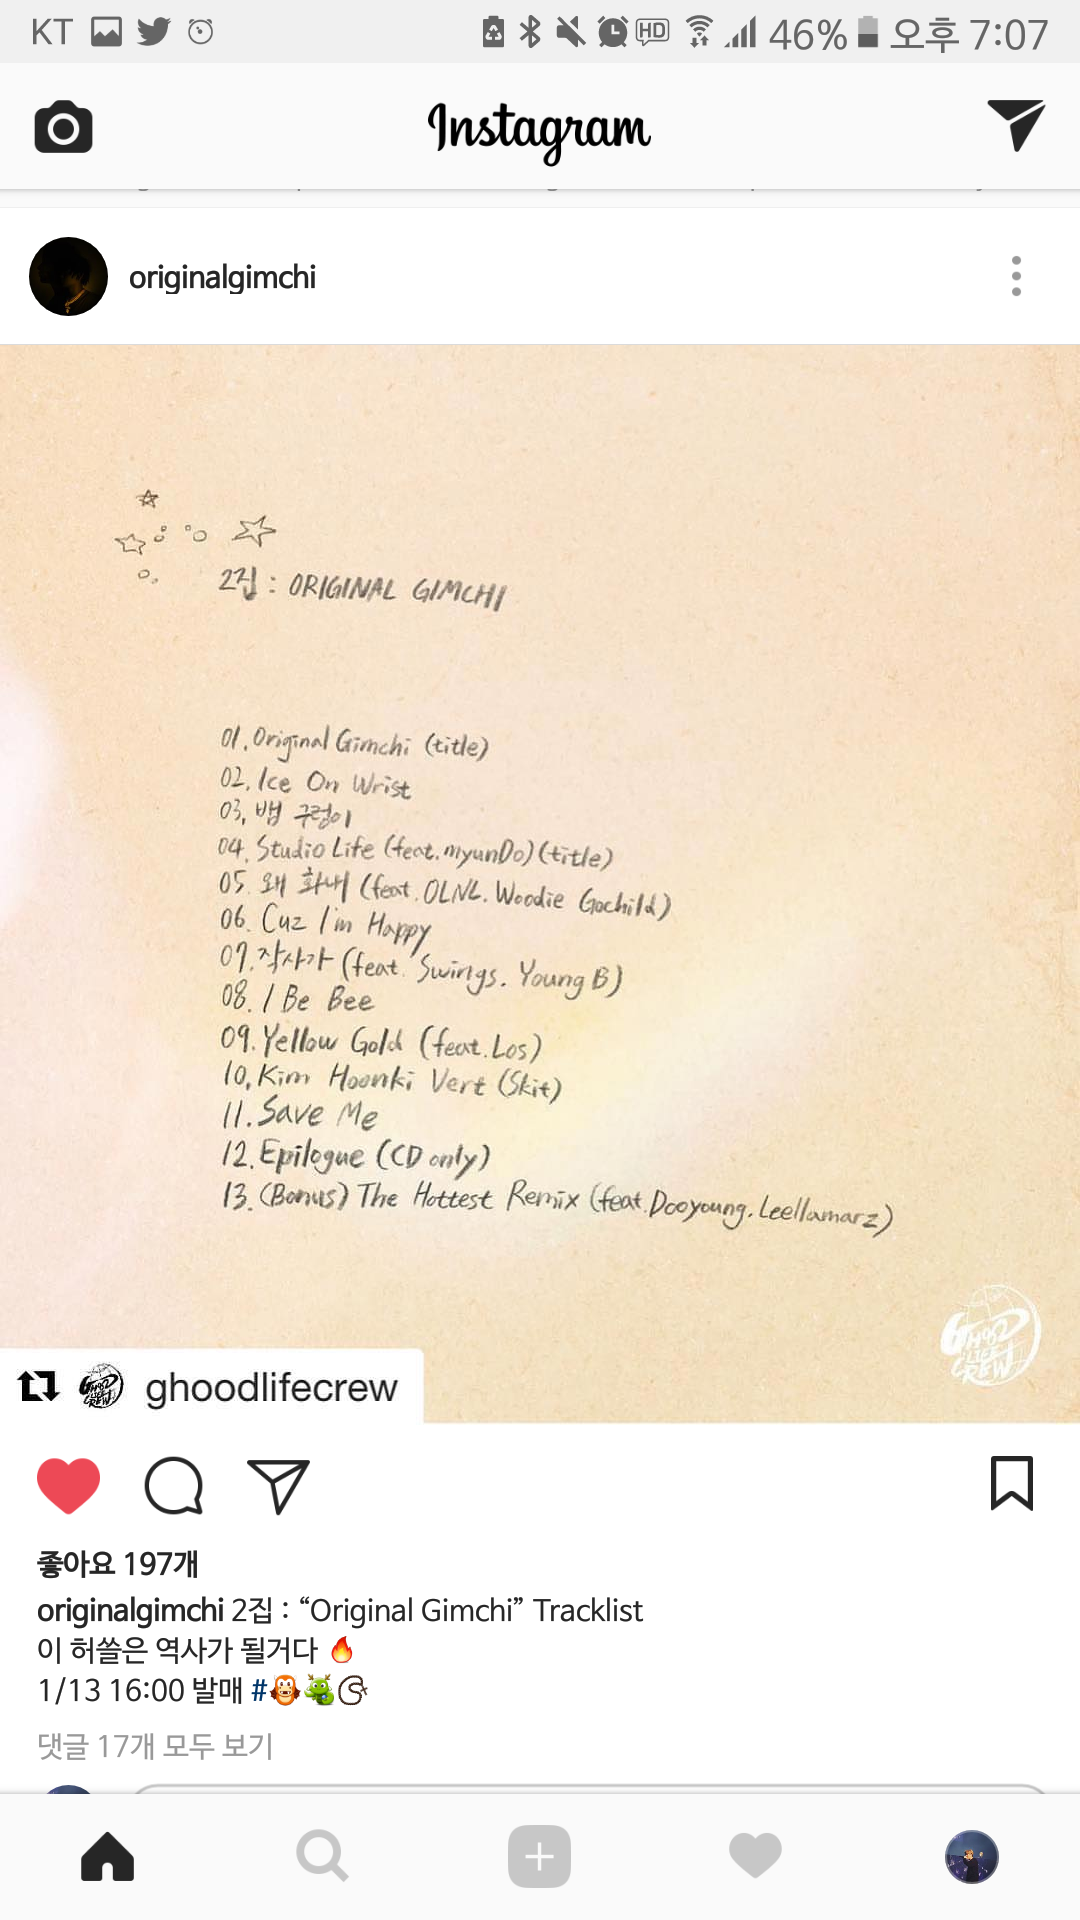 KT HD 46% 오후 7:07
Instagram
originalgimchi
2집 : ORIGINAL GIMCHI
01. Original Gimchi (title)
02. Ice On Wrist
03. 뱁 구렁이
04. Studio Life (feat. myunDo) (title)
05. 왜 화내 (feat. OLNL. Woodie Gochild)
06. Cuz I'm Happy
07. 작사가 (feat. Swings. Young B)
08. I Be Bee
09. Yellow Gold (feat. Los)
10. Kim Hoonki Vert (Skit)
11. Save Me
12. Epilogue (CD only)
13. (Bonus) The Hottest Remix (feat. Dooyoung. Leellamarz)
GHOOD
LIFE
CREW
ghoodlifecrew
좋아요 197개
originalgimchi 2집 : “Original Gimchi” Tracklist
이 허쓸은 역사가 될거다 🔥
1/13 16:00 발매 #
댓글 17개 모두 보기